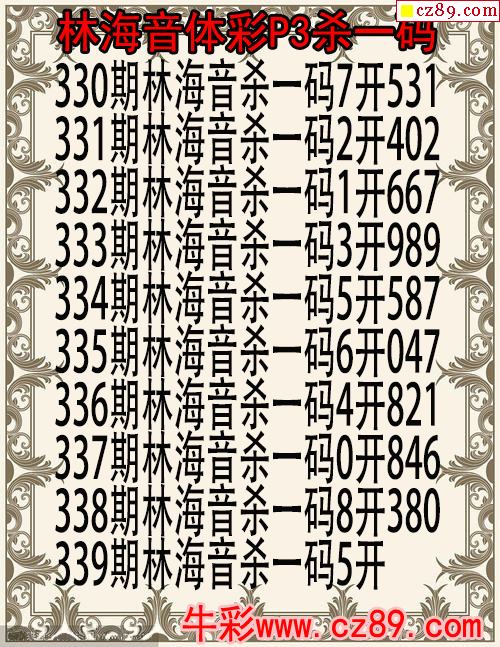 cz89.com
林海音体彩P3杀一码
330期林海音杀一码7开531
331期林海音杀一码2开402
332期林海音杀一码1开667
333期林海音杀一码3开989
334期林海音杀一码5开587
335期林海音杀一码6开047
336期林海音杀一码4开821
337期林海音杀一码0开846
338期林海音杀一码8开380
339期林海音杀一码5开
牛彩www.cz89.com